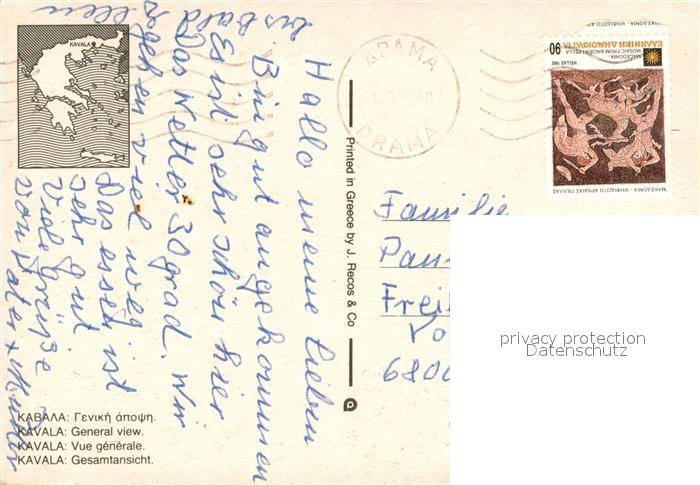 Hallo meine lieben
Bin gut angekommen
Es ist sehr schön hier
Das Wetter 30 grad. Wir
gehen viel weg
Das essen ist
sehr gut
viele grüße
von Vater + Mutter
bis bald
KAVALA
ΚΑΒΑΛΑ: Γενική άποψη.
KAVALA: General view.
KAVALA: Vue générale.
KAVALA: Gesamtansicht.
Printed in Greece by J. Recos & Co
ΔΡΑΜΑ
DRAMA
90
ΕΛΛΗΝΙΚΗ ΔΗΜΟΚΡΑΤΙΑ
MACEDONIA
MOSAIC FROM ANCIENT PELLA
HELLAS 1992
ΜΑΚΕΔΟΝΙΑ - ΨΗΦΙΔΩΤΟ ΑΡΧΑΙΑΣ ΠΕΛΛΑΣ
Familie
Frei
6800
privacy protection
Datenschutz